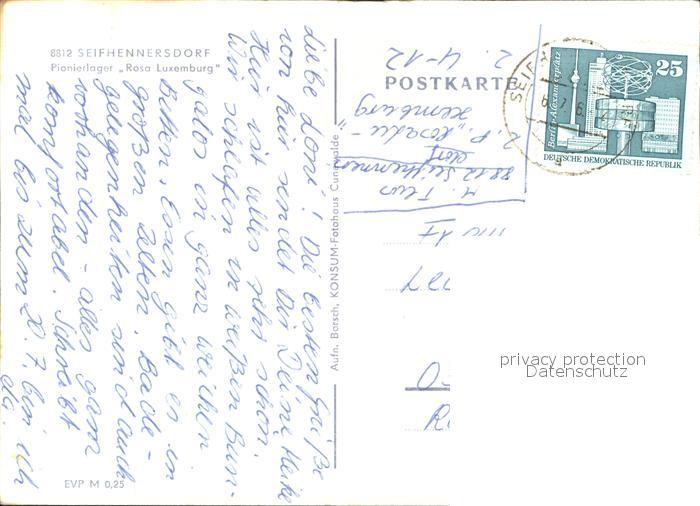 8812 SEIFHENNERSDORF
Pionierlager „Rosa Luxemburg"
POSTKARTE
Liebe Doni! Die besten Grüße
von hier sendet Dir Deine Heike
Hier ist alles sehr schön.
Wir schlafen in weißen Bun-
galos in ganz weichen
Betten, Essen gibt es in
großen Zelten. Bade-
gelegenheiten sind auch
vorhanden - alles ganz
komfortabel. Schreibt
mal bis zum 20.7. bin ich
da.
Aufn. Borsch, KONSUM-Fotohaus Cunewalde
EVP M 0,25
8812 Seifhenners
dorf
2. 4-12
Berlin-Alexanderplatz
25
DEUTSCHE DEMOKRATISCHE REPUBLIK
privacy protection
Datenschutz